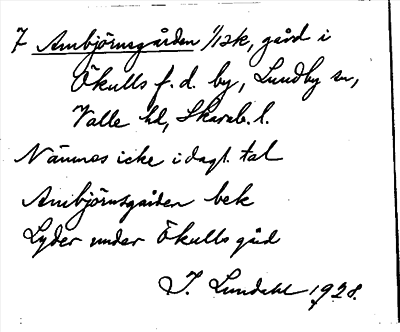 7 Ambjörnsgården 1/12k, gård i
Ökulls f.d. by, Lundby sn,
Valle hd, Skarab. l.
Nämnes icke i dagl. tal
Ambjörnsgården bek
Lyder under Ökulls gård
J. Lundahl 1928.